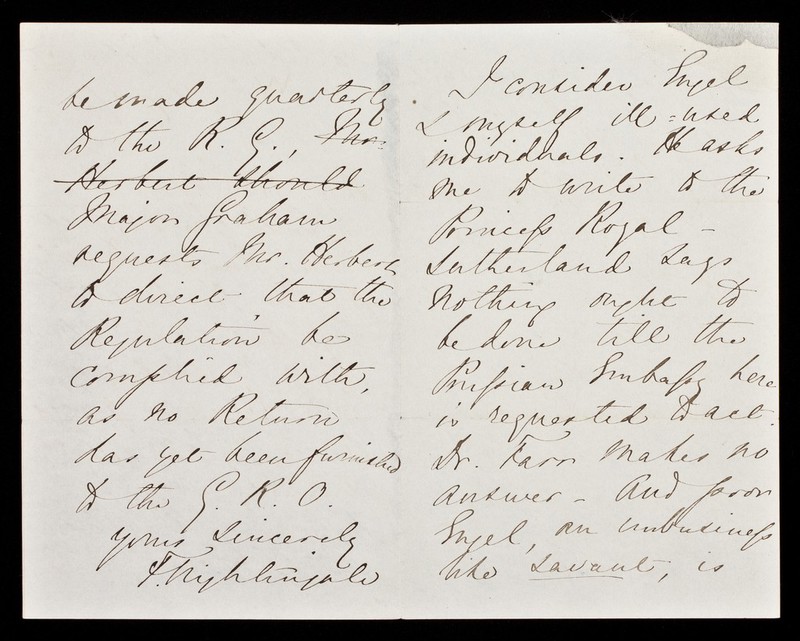 be made quarterly
to the R. G., Mr.
Herbert should
Major Graham
requests Mr. Herbert
to direct that the
Regulation be
complied with,
as no Return
has yet been furnished
to the G. R. O.
yours sincerely
F. Nightingale
I consider Engel
& myself ill-used
individuals. He asks
me to write to the
Princess Royal -
Sutherland says
nothing ought to
be done till the
Prussian Embassy here
is requested to act.
Dr. Farr makes no
answer - And poor
Engel, an unbusiness
like savant, is